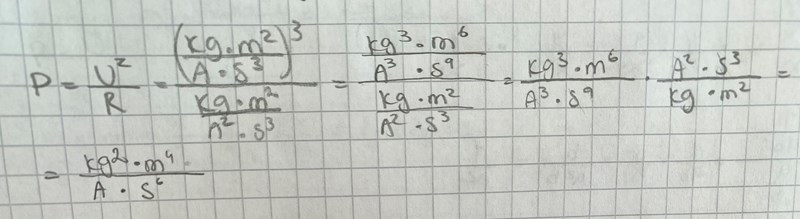 P = U²/R = ((kg·m²)/(A·s³))³/((kg·m²)/(A²·s³)) = ((kg³·m⁶)/(A³·s⁹))/((kg·m²)/(A²·s³)) = (kg³·m⁶)/(A³·s⁹) · (A²·s³)/(kg·m²) =
= (kg²·m⁴)/(A·s⁶)